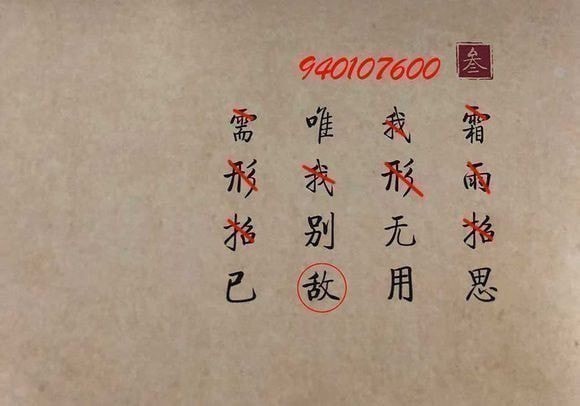 940107600 叁
霜雨招思
我形无用
唯我别敌
需形招已